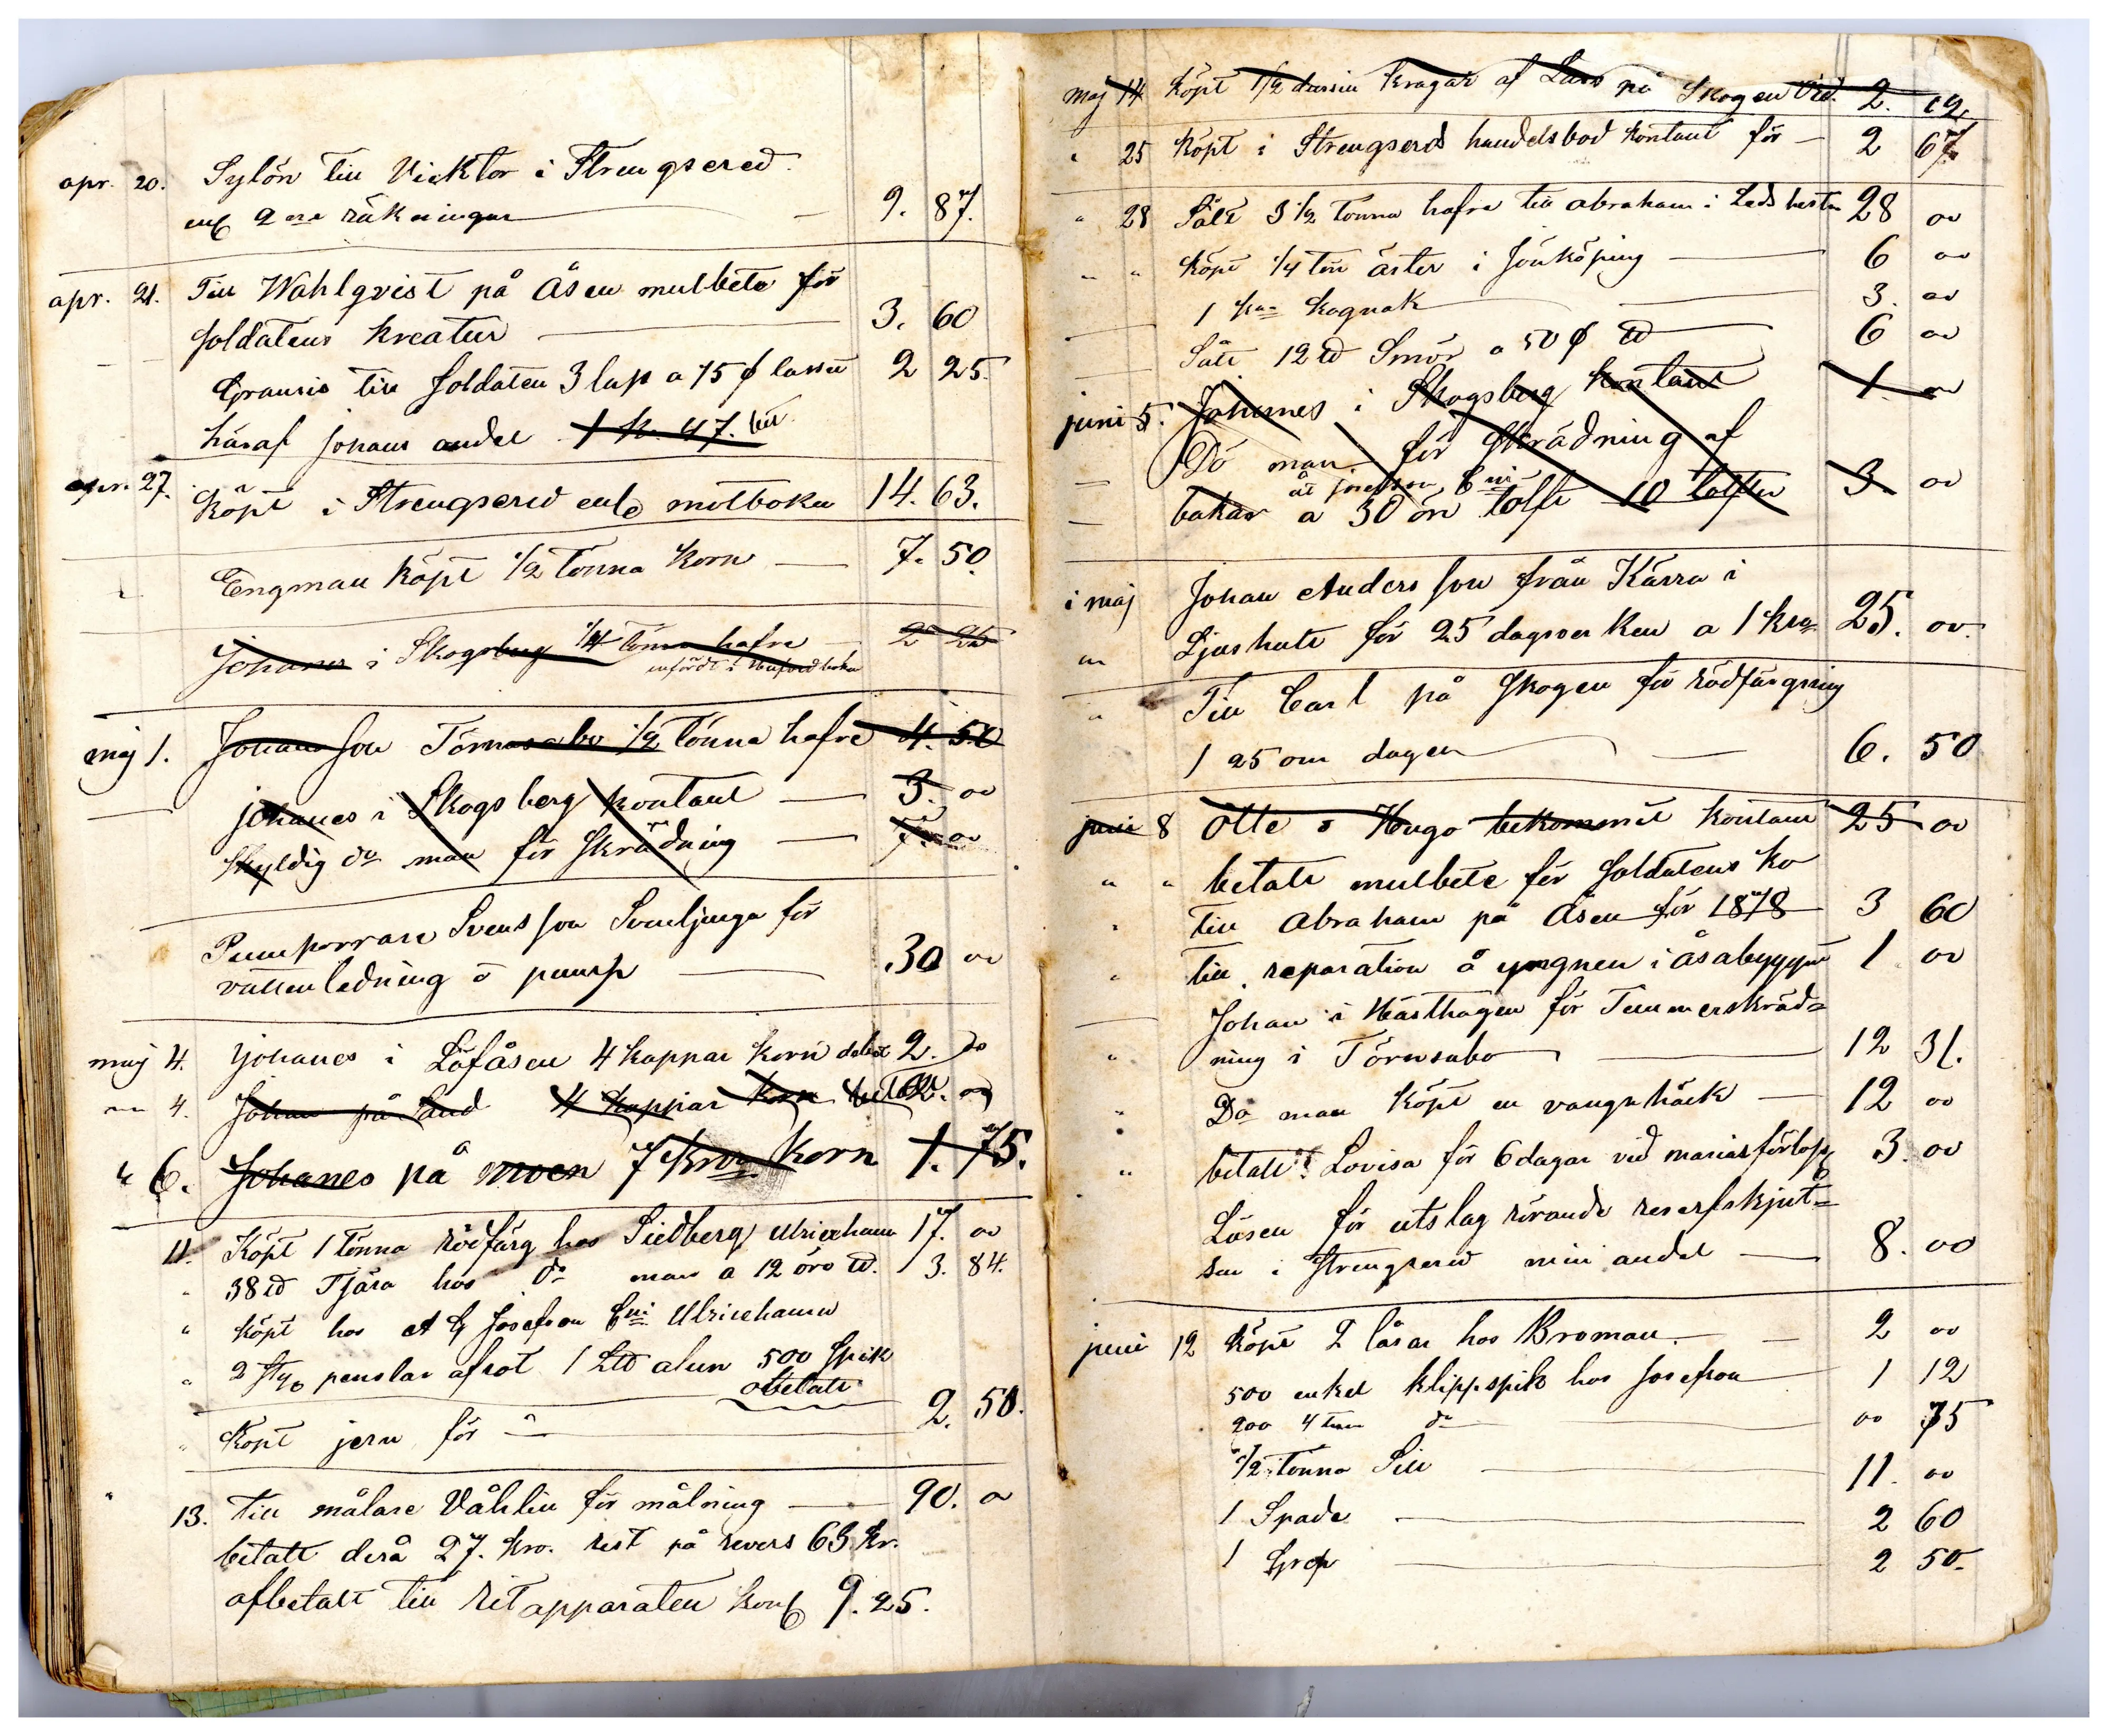 apr. 20. Sylön till Vicktor i Strengsered
enl 2ne räkningar — 9. 87.
apr. 21. Till Wahlqvist på Åsen mulbete för
soldatens kreatur — 3. 60
Granris till soldaten 3 lass a 75 ø lasset 2 25.
häraf johans andel 1 kr. 47.
apr. 27. Köpt i Strengsered enl motboken 14. 63.
Engman köpt 1/2 tönna korn — 7. 50.
Johanes i Skogsberg 1/4 tönna hafre 2 25
införдt i boken
maj 1. Johansson Törnasabo 1/2 tönna hafre 4. 50
johanes i Skogsberg kontant — 3. 00
Skyldig do man för Skrädning —
Pumpborrare Svensson Svenljunga för
vattenledning o pump — 30 00
maj 4. johanes i Löfåsen 4 kappar korn 2.
4. Johan på Lund 4 kappar korn 2. 00
" 6. Johanes på moen 7 korn 1. 75.
11. Köpt 1 tönna rödfärg hos Siedberg Ulricehamn 17. 00
" 38 ℔ Tjära hos do man a 12 öre ℔. 3. 84.
" köpt hos A G Josefson Ulricehamn
" 2 penslar 1 L℔ alun 500 spik
obetalt
" Köpt jern för — 2. 50.
13. till målare Våhlin för målning — 90. 00
betalt derå 27. kro. rest på revers 63 Kr.
afbetalt till ritapparaten 9. 25.
maj 14 köpt 1/2 dussin kragar af Lars på Skogen 2. 12
" 25 köpt i Strengsereds handelsbod kontant för — 2 67
" 28 Sålt 3 1/2 tönna hafre till abraham i 28 00
" " köpt 1/4 ton ärter i Jönköping — 6 00
1 kan kognak — 3. 00
Sålt 12 ℔ Smör a 50 ø ℔ 6 00
juni 5. Johannes i Skogsberg kontant 1. 00
Do man för Skrädning af
åt josefson
bakar a 30 öre tolft 10 tolfter 3. 00
i maj Johan Andersson från Kärra i
Ljushult för 25 dagsverken a 1 kro 25. 00.
" Till Carl på Skogen för rödfärgning
1 25 om dagen — 6. 50
juni 8 Otto o Hugo bekommit kontant 25 00
" " betalt mulbete för soldatens ko
" till Abraham på Åsen för 1878 3 60
" till reparation å ungnen i åsabyggn 1 00
Johan i Hästhagen för Timmerskräd=
" ning i Törnsabo — 12 31.
" Do man köpt en vangnhäck — 12 00
" betalt Lovisa för 6 dagar vid 3. 00
Lösen för utslag rörande reserfskjut=
sen i Strengsered min andel — 8. 00
juni 12 köpt 2 låsar hos Broman. — 2 00
500 enkel klippspik hos Josefson 1 12
200 4 tum do — 00 75
1/2 tönna Sill — 11. 00
1 Spade — 2 60
1 Grep — 2 50.